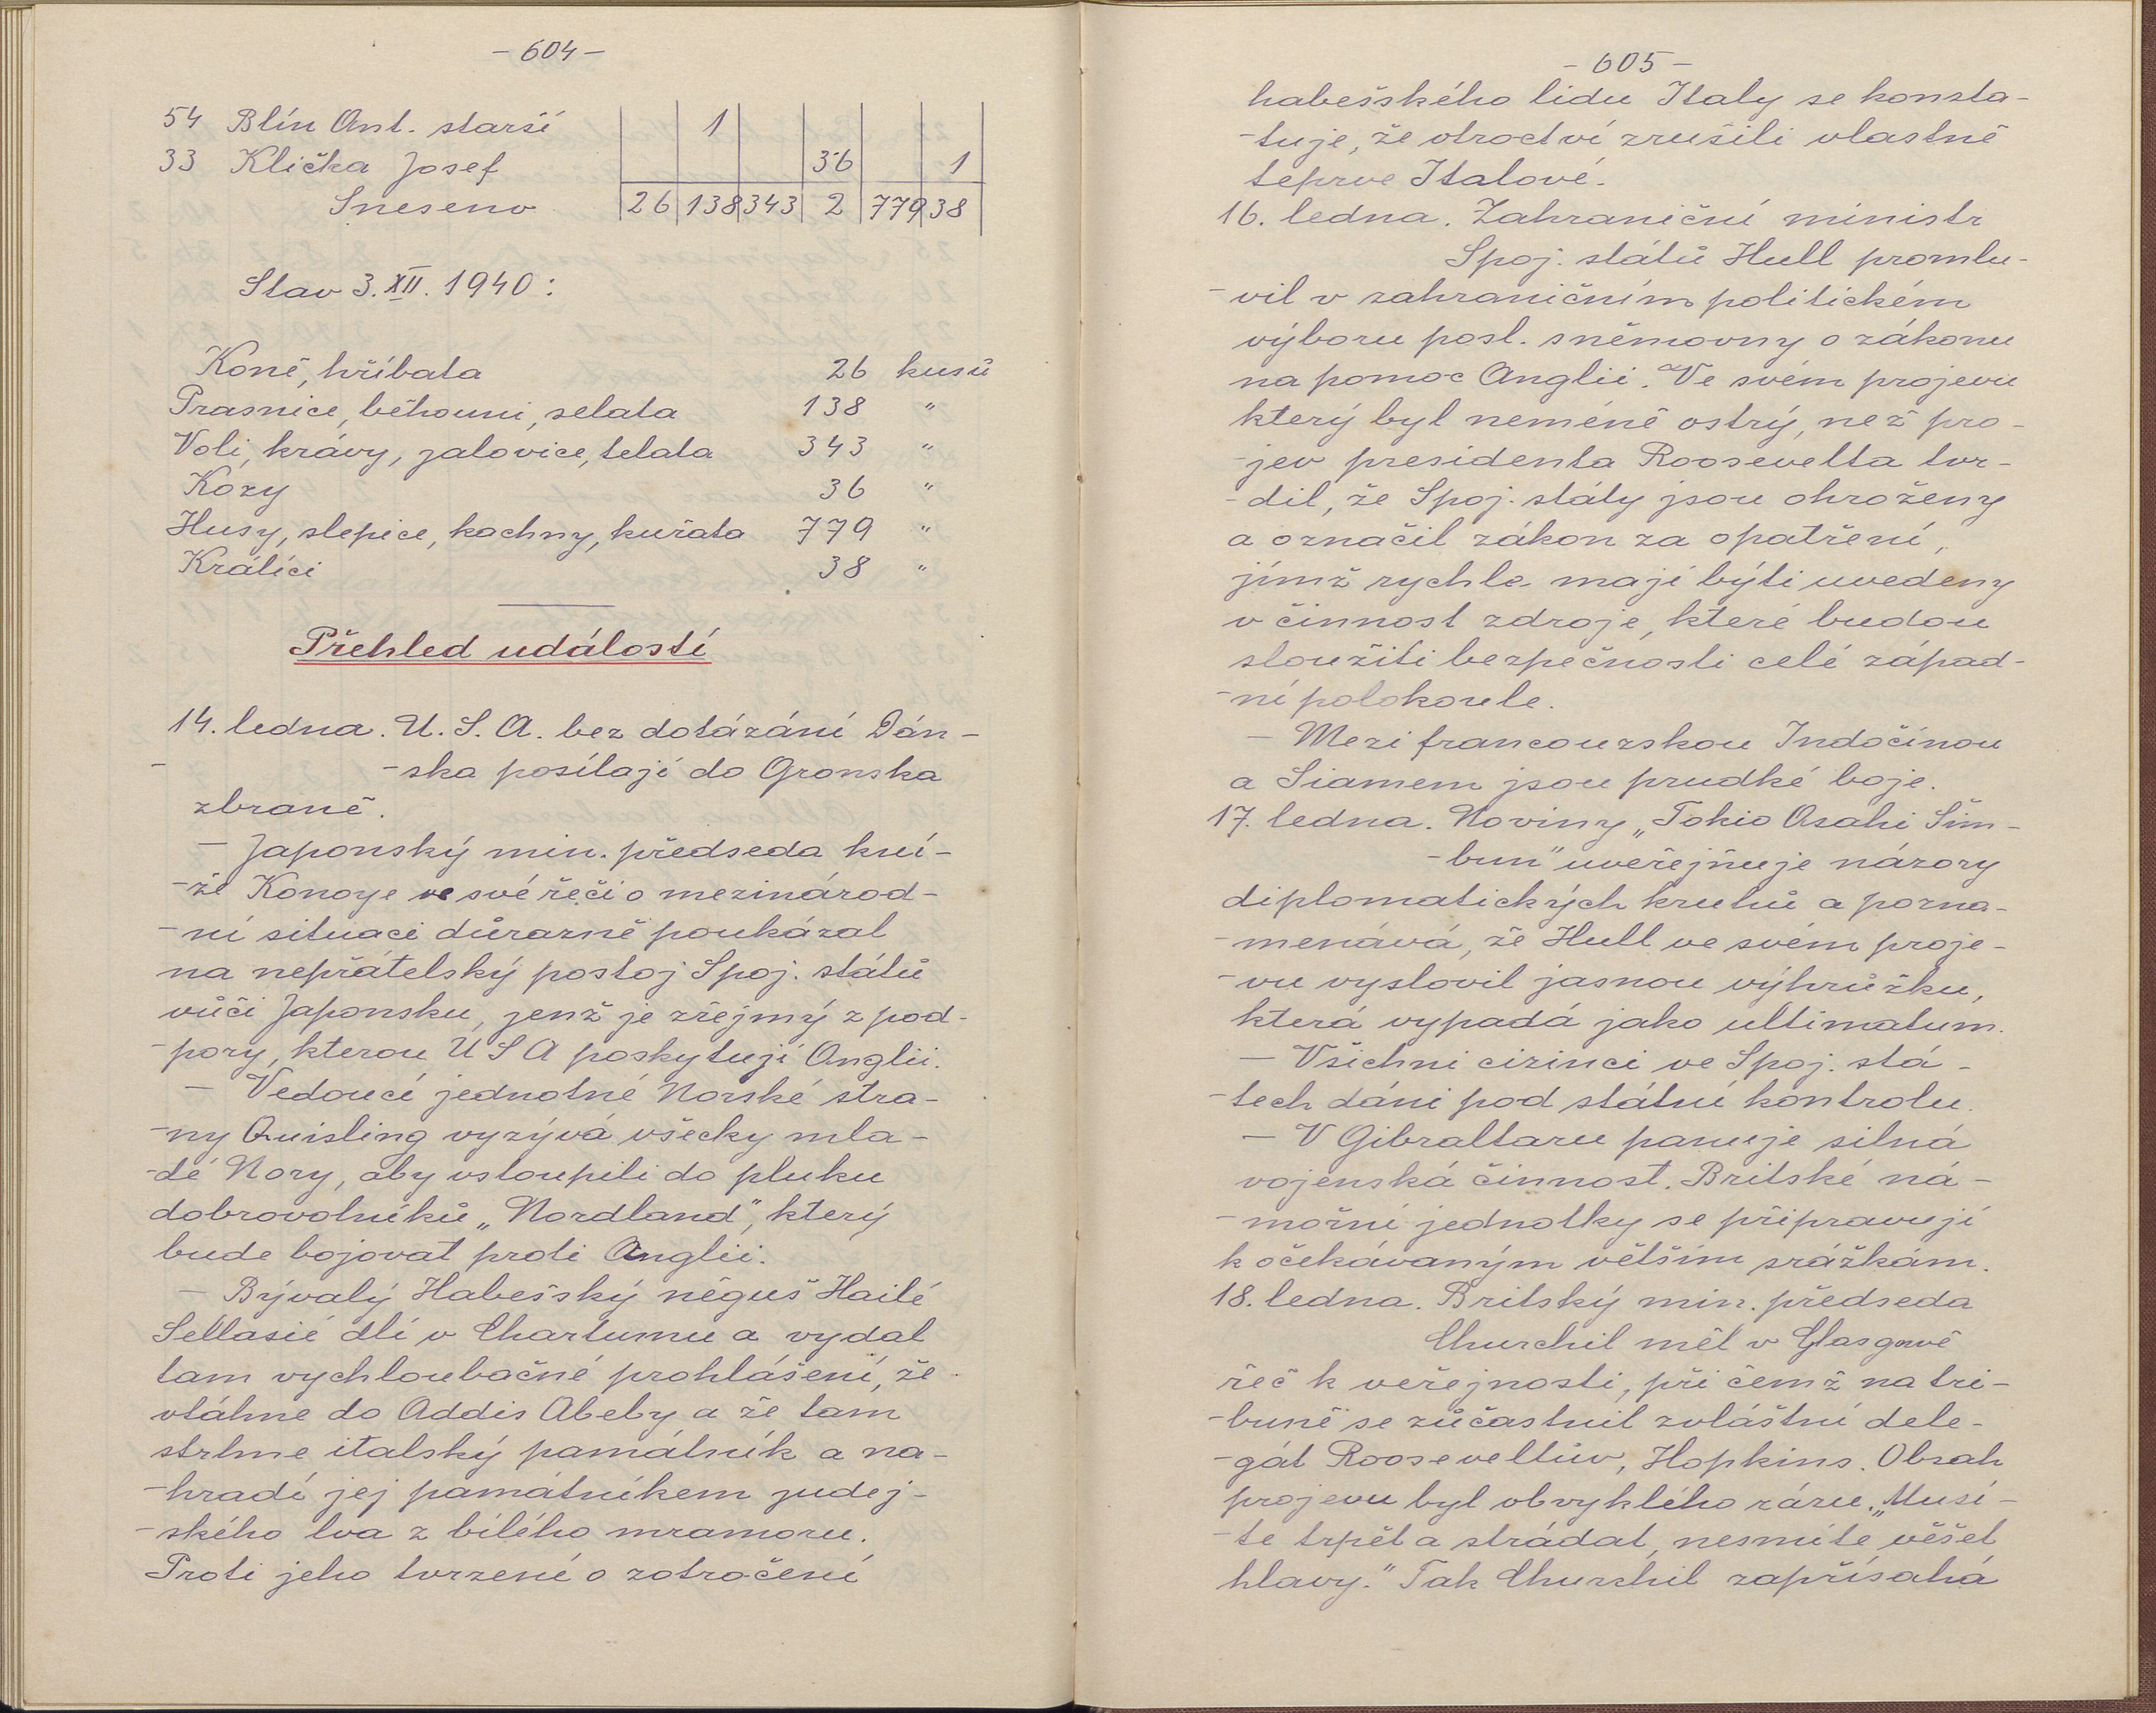 - 604 -
54 Blín Ant. starší 1
33 Klička Josef 36 1
Sneseno 26 138 343 2 779 38
Stav 3. XII. 1940:
Koně, hříbata 26 kusů
Prasnice, běhouni, selata 138 "
Voli, krávy, jalovice, telata 343 "
Kozy 36 "
Husy, slepice, kachny, kuřata 779 "
Králíci 38 "
Přehled událostí
14. ledna. U. S. A. bez dotázání Dán-
-ska posílají do Gronska
zbraně.
- Japonský min. předseda kní-
-že Konoye ve své řeči o mezinárod-
-ní situaci důrazně poukázal
na nepřátelský postoj Spoj. států
vůči Japonsku, jenž je zřejmý z pod-
-pory, kterou U S A poskytují Anglii.
- Vedoucí jednotné Norské stra-
-ny Quisling vyzývá všecky mla-
-dé Nory, aby vstoupili do pluku
dobrovolníků „Nordland", který
bude bojovat proti Anglii.
- Bývalý Habešský něguš Hailé
Sellasié dlí v Chartumu a vydal
tam vychloubačné prohlášení, že
vtáhne do Addis Abeby a že tam
strhne italský památník a na-
-hradí jej památníkem judej-
-ského lva z bílého mramoru.
Proti jeho tvrzení o zotročení
- 605 -
habešského lidu Italy se konsta-
-tuje, že otroctví zrušili vlastně
teprve Italové.
16. ledna. Zahraniční ministr
Spoj. států Hull promlu-
-vil v zahraničním politickém
výboru posl. sněmovny o zákonu
na pomoc Anglii. Ve svém projevu
který byl neméně ostrý, než pro-
-jev presidenta Roosevelta tvr-
-dil, že Spoj. státy jsou ohroženy
a označil zákon za opatření,
jímž rychle mají býti uvedeny
v činnost zdroje, které budou
sloužiti bezpečnosti celé západ-
-ní polokoule.
- Mezi francouzskou Indočínou
a Siamem jsou prudké boje.
17. ledna. Noviny „Tokio Asahi Šim-
-bun" uveřejňuje názory
diplomatických kruhů a pozna-
-menává, že Hull ve svém proje-
-vu vyslovil jasnou výhrůžku,
která vypadá jako ultimatum.
- Všichni cizinci ve Spoj. stá-
-tech dáni pod státní kontrolu.
- V Gibraltaru panuje silná
vojenská činnost. Britské ná-
-mořní jednotky se připravují
k očekávaným větším srážkám.
18. ledna. Britský min. předseda
Churchil měl v Glasgowě
řeč k veřejnosti, při čemž na tri-
-buně se zúčastnil zvláštní dele-
-gát Rooseveltův, Hopkins. Obsah
projevu byl obvyklého rázu. „Musí-
-te trpět a strádat, nesmíte věšet
hlavy." Tak Churchil zapřísahá